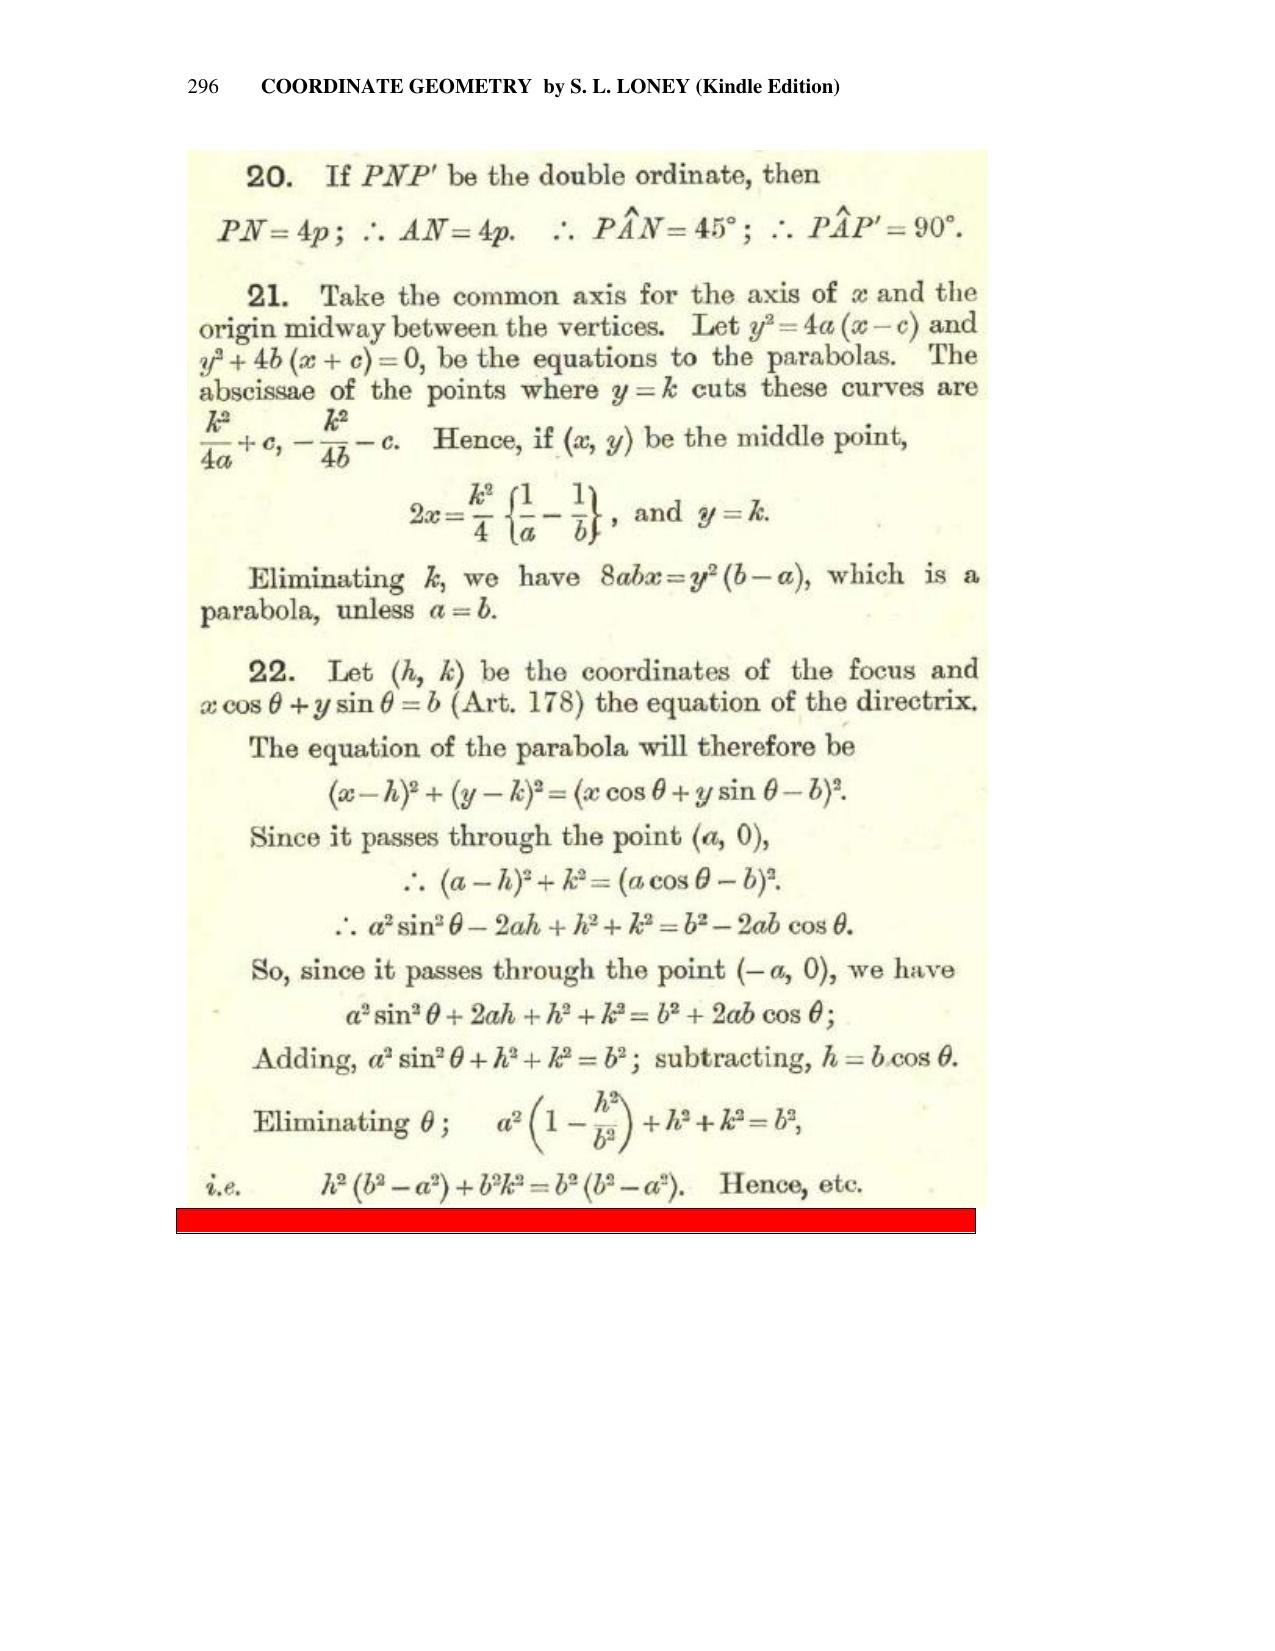 296 COORDINATE GEOMETRY by S. L. LONEY (Kindle Edition)
20. If PNP′ be the double ordinate, then
PN = 4p; ∴ AN = 4p. ∴ PÂN = 45°; ∴ PÂP′ = 90°.
21. Take the common axis for the axis of x and the
origin midway between the vertices. Let y² = 4a (x − c) and
y² + 4b (x + c) = 0, be the equations to the parabolas. The
abscissae of the points where y = k cuts these curves are
k²/4a + c, − k²/4b − c. Hence, if (x, y) be the middle point,
2x = k²/4 {1/a − 1/b}, and y = k.
Eliminating k, we have 8abx = y² (b − a), which is a
parabola, unless a = b.
22. Let (h, k) be the coordinates of the focus and
x cos θ + y sin θ = b (Art. 178) the equation of the directrix.
The equation of the parabola will therefore be
(x − h)² + (y − k)² = (x cos θ + y sin θ − b)².
Since it passes through the point (a, 0),
∴ (a − h)² + k² = (a cos θ − b)².
∴ a² sin² θ − 2ah + h² + k² = b² − 2ab cos θ.
So, since it passes through the point (− a, 0), we have
a² sin² θ + 2ah + h² + k² = b² + 2ab cos θ;
Adding, a² sin² θ + h² + k² = b²; subtracting, h = b cos θ.
Eliminating θ; a² (1 − h²/b²) + h² + k² = b²,
i.e. h² (b² − a²) + b²k² = b² (b² − a²). Hence, etc.